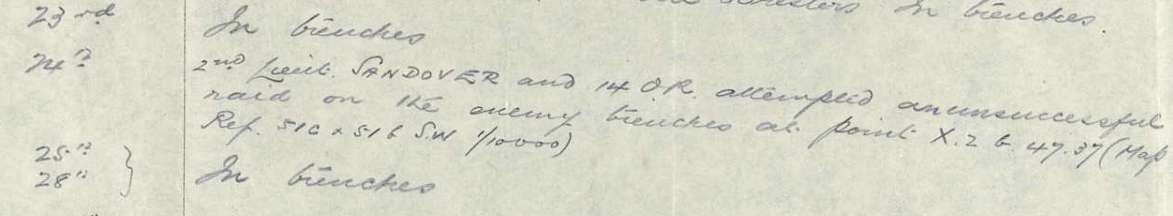 in trenches.
23rd In trenches
24th 2nd Lieut. SANDOVER and 14 O.R. attempted an unsuccessful
raid on the enemy trenches at point X.2 b. 47.37 (Map
Ref. 51C & 51b S.W 1/10000)
25th }
28th } In trenches